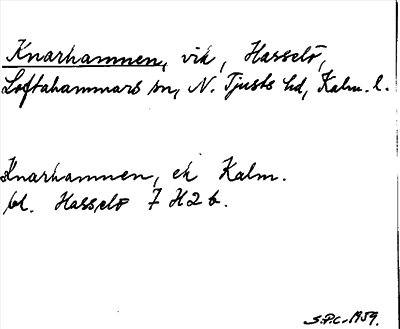 Knarhamnen, vik, Hasselö,
Loftahammars sn, N. Tjusts hd, Kalm. l.
Knarhamnen, ek Kalm.
bl. Hasselö 7 H 2 b.
S.P.C. 1959.